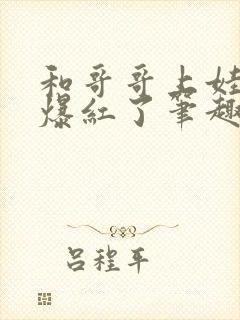 和哥哥上娃
爆红了笔趣
吕程平